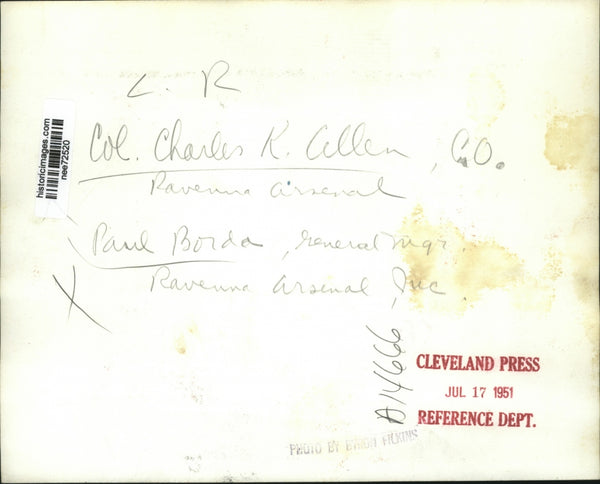 L. R
Col. Charles K. Allen, C.O.
Ravenna Arsenal
Paul Borda, General Mgr.
Ravenna Arsenal, Inc
X
historicimages.com
nee72520
A14666
CLEVELAND PRESS
JUL 17 1951
REFERENCE DEPT.
PHOTO BY BYRON FILKINS